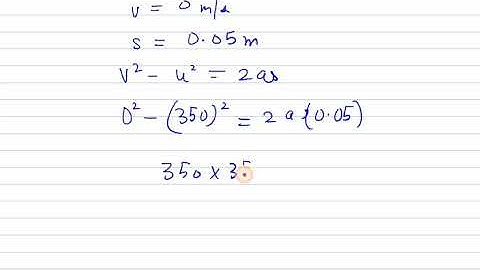 v = 0 m/s
s = 0.05 m
v² - u² = 2as
0² - (350)² = 2 a (0.05)
350 x 35